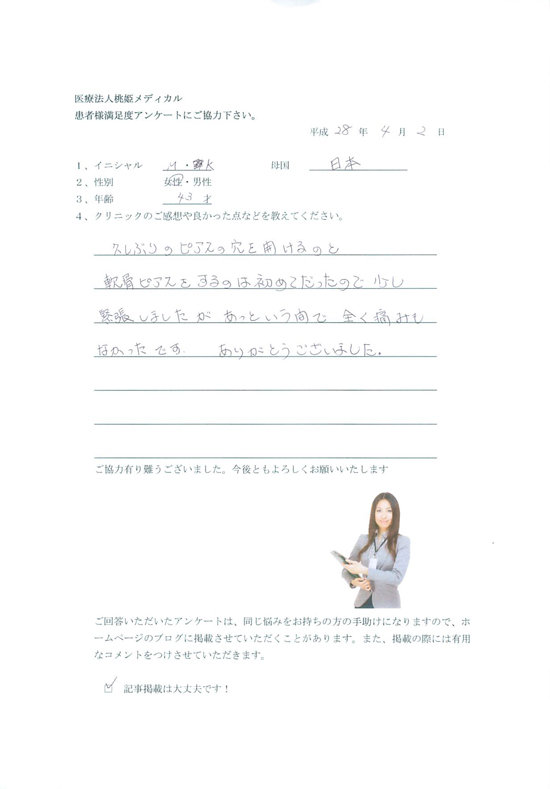 医療法人桃姫メディカル
患者様満足度アンケートにご協力下さい。
平成 28 年 4 月 2 日
1、イニシャル M・K 母国 日本
2、性別 女性・男性
3、年齢 43 才
4、クリニックのご感想や良かった点などを教えてください。
久しぶりのピアスの穴を開けるのと
軟骨ピアスをするのは初めてだったので少し
緊張しましたが あっという間で 全く痛みも
なかったです。 ありがとうございました。
ご協力有り難うございました。今後ともよろしくお願いいたします
ご回答いただいたアンケートは、同じ悩みをお持ちの方の手助けになりますので、ホ
ームページのブログに掲載させていただくことがあります。また、掲載の際には有用
なコメントをつけさせていただきます。
記事掲載は大丈夫です！